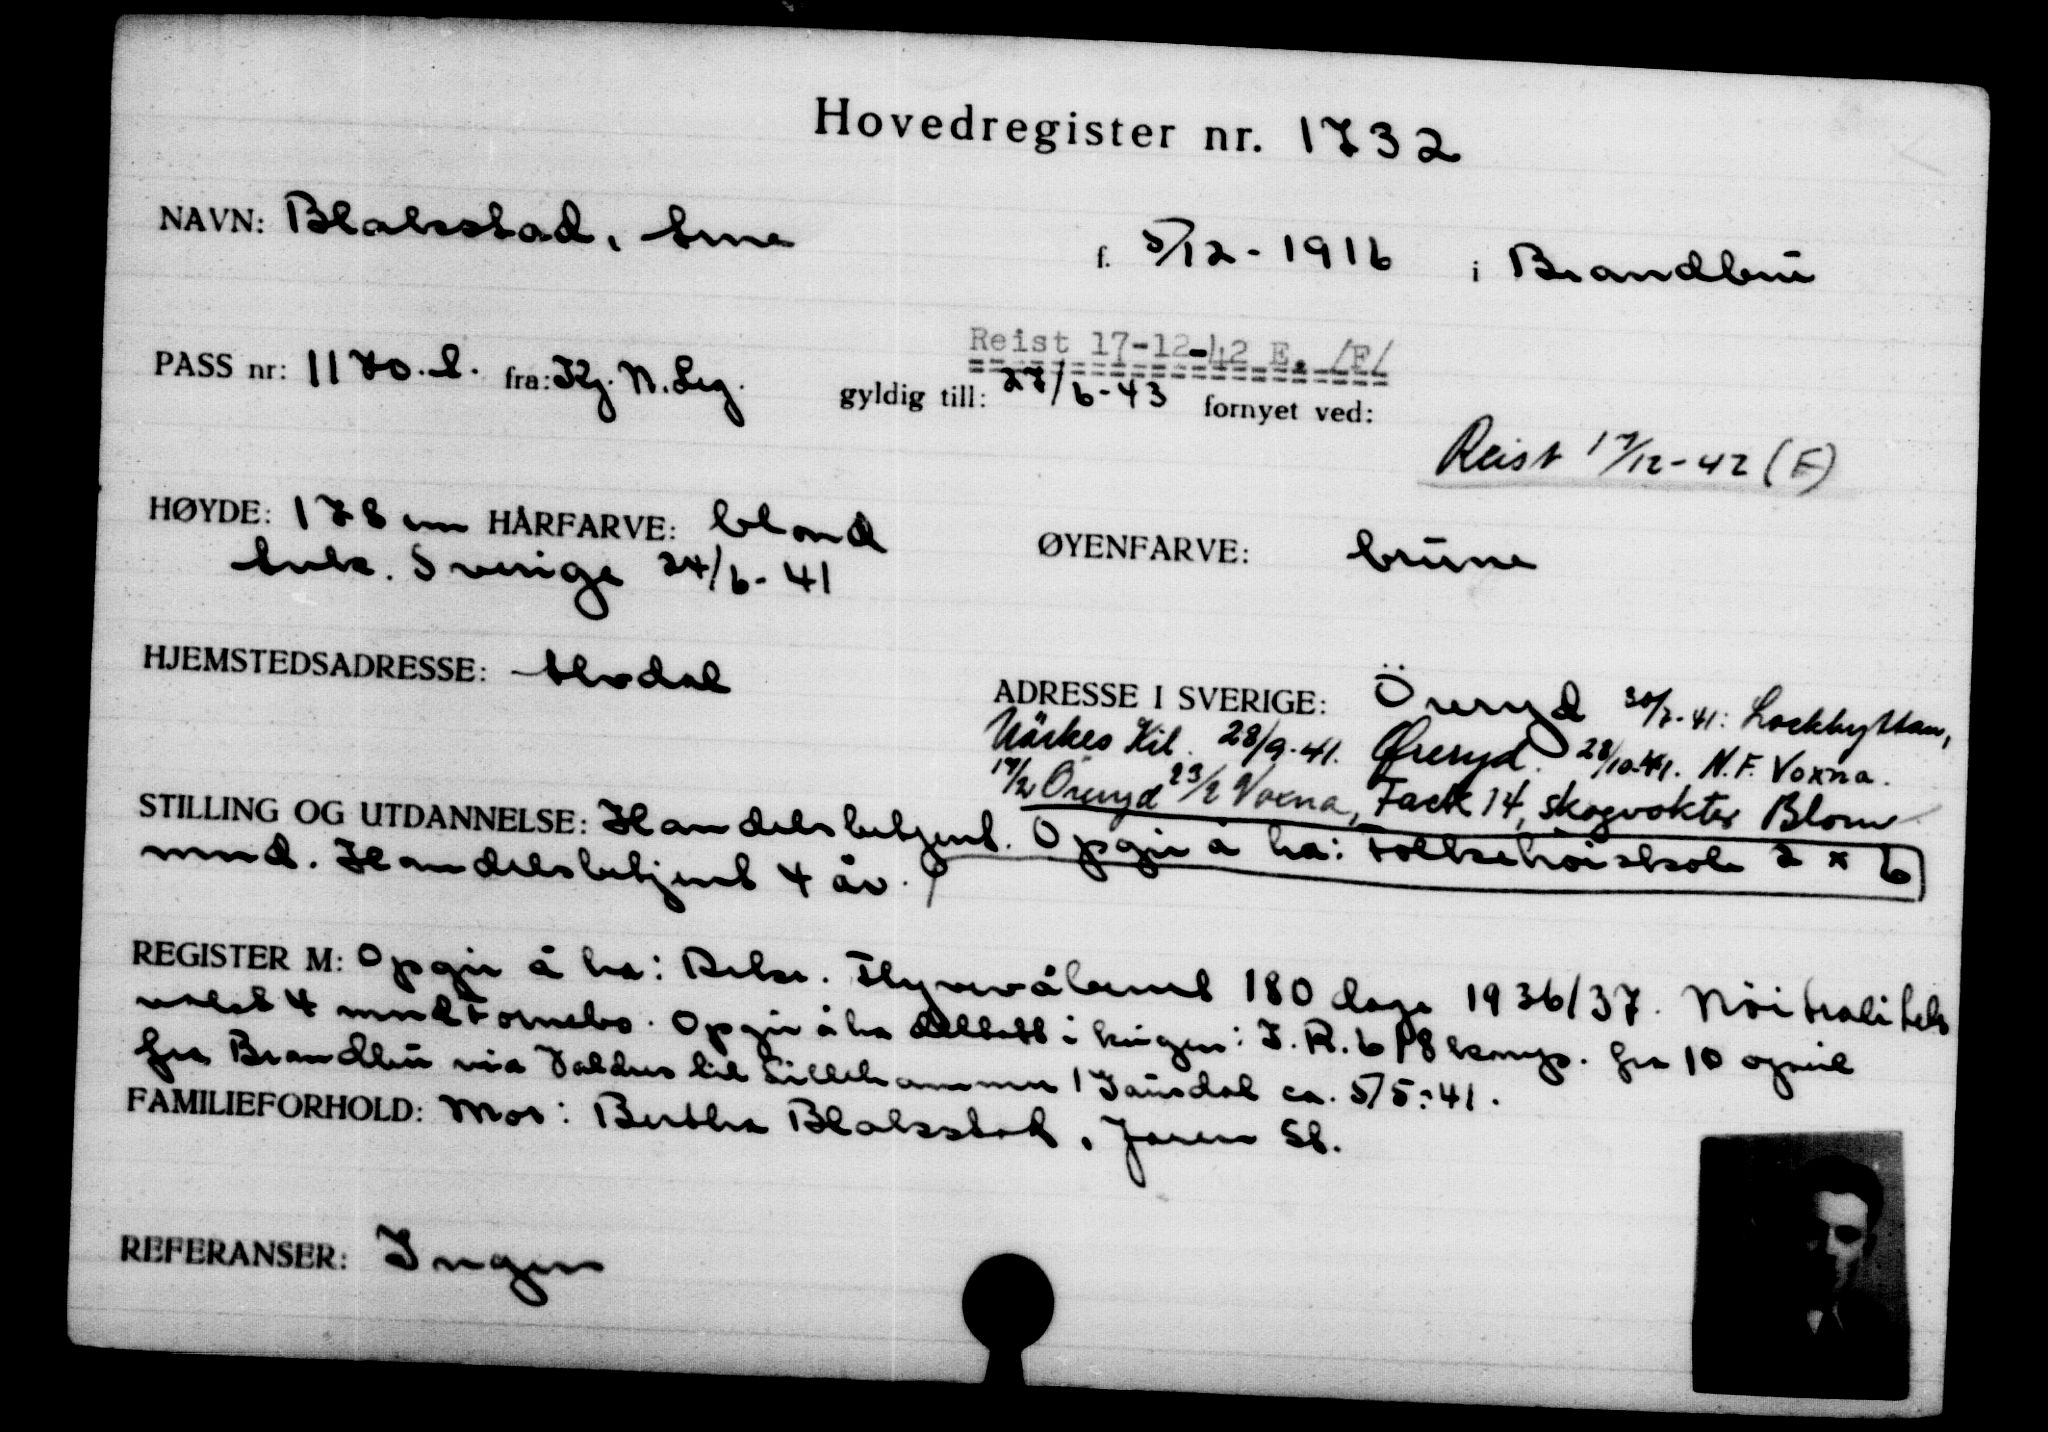 Hovedregister nr. 1732
NAVN: Blakstad, Arne f. 5/12-1916 i Brandbu
Reist 17-12-42 E. /F/
PASS nr: 1170.L. fra: Kg. N. Leg. gyldig till: 27/6-43 fornyet ved:
Reist 17/12-42 (F)
HØYDE: 178 cm HÅRFARVE: blond ØYENFARVE: brune
Ank. Sverige 24/6-41
HJEMSTEDSADRESSE: Alvdal
ADRESSE I SVERIGE: Öreryd 30/7-41: Lockhyttan,
Närkes Kil. 28/9-41. Øreryd. 28/10-41. N.F. Voxna.
17/2 Öreryd 23/2 Voxna, Fack 14, skogvokter Blom
STILLING OG UTDANNELSE: Handelsbetjent. Opgir å ha: Folkehöiskole 2 x 6
mnd. Handelsbetjent 4 år.
REGISTER M: Opgir å ha: Rekr. Flyvevåbnet 180 dage 1936/37. Nöitralitets
vakt 4 mnd Fornebo. Opgir å ha deltatt i krigen: I.R.6 8 komp. fra 10 april
fra Brandbu via Valdres til Lillehammer Gausdal ca. 5/5-41.
FAMILIEFORHOLD: Mor: Bertha Blakstad, Jaren St.
REFERANSER: Ingen